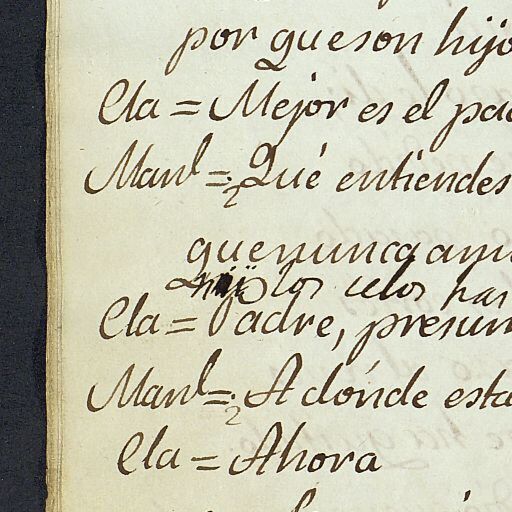 por que son hijo
Cla = Mejor es el pad
Man.l = ¿Qué entiendes
que nunca am
los celos han
Cla = Padre, presum
Man.l = ¿A dónde esta
Cla = Ahora